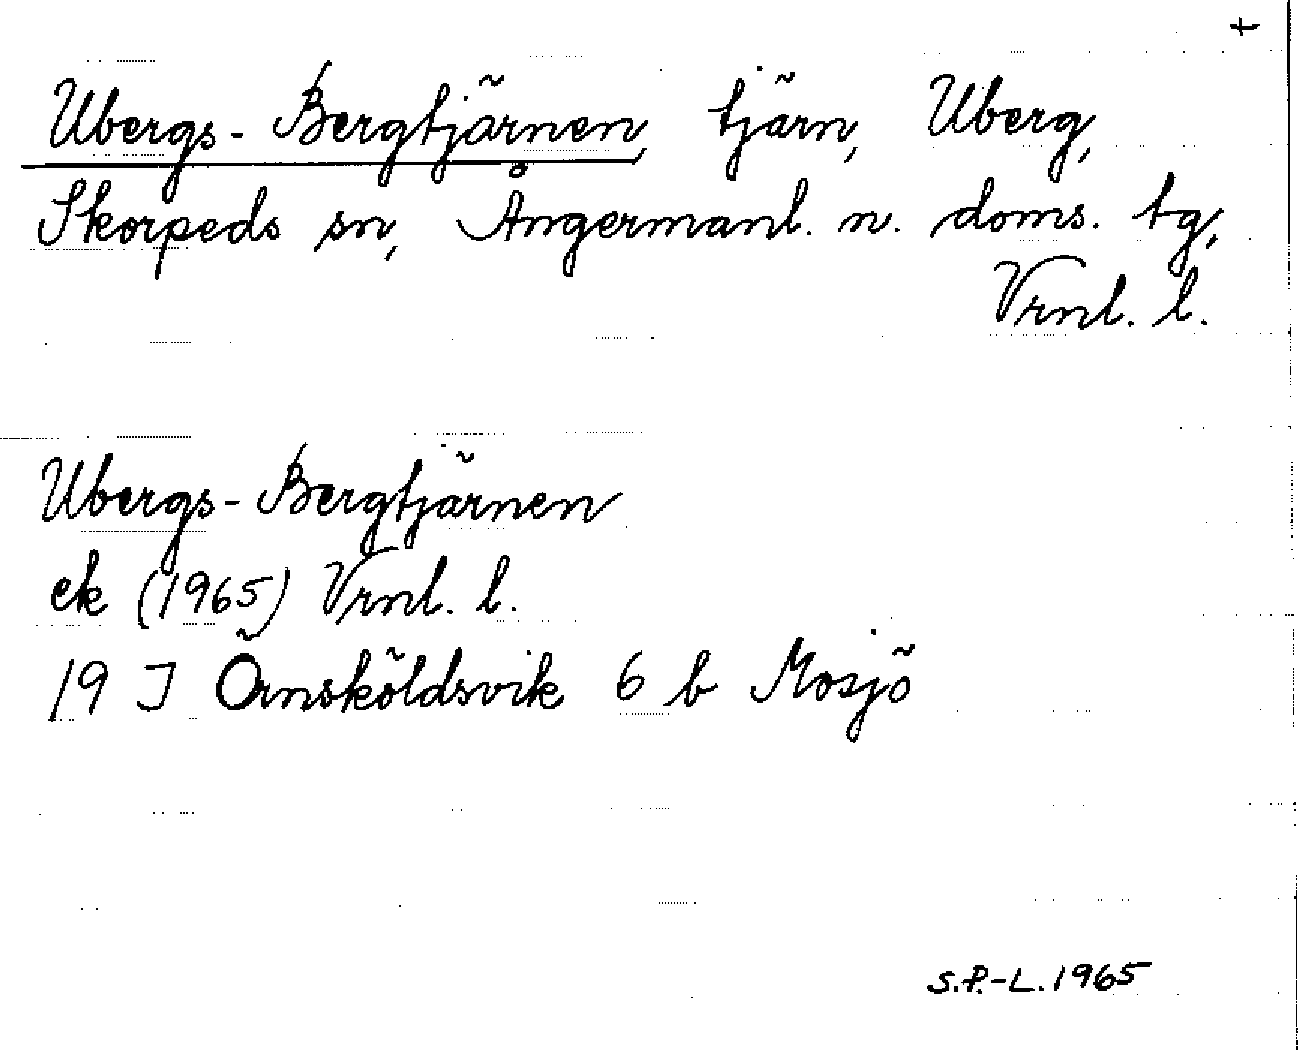 t
Ubergs-Bergtjärnen, tjärn, Uberg,
Skorpeds sn, Ångermanl. n. doms. tg,
Vrnl. l.
Ubergs-Bergtjärnen
ek (1965) Vrnl. l.
19 J Örnsköldsvik 6 b Mosjö
S.P.-L. 1965